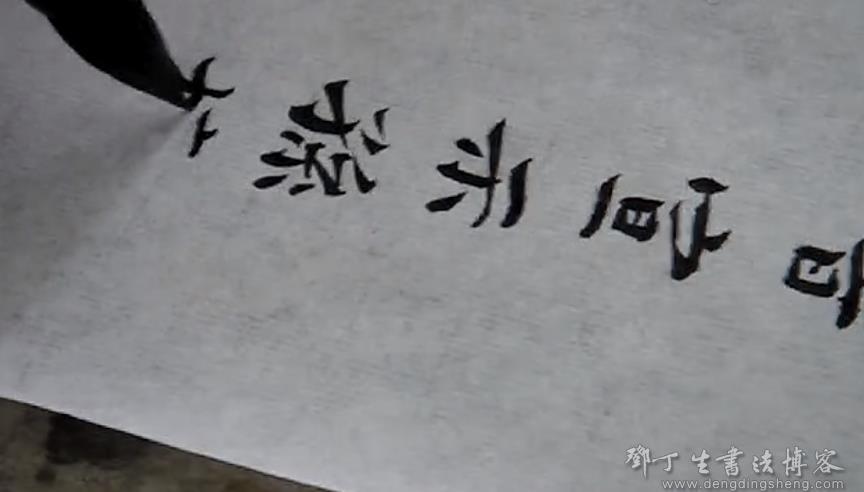 宣示孫
鄧丁生書法博客
www.dengdingsheng.com